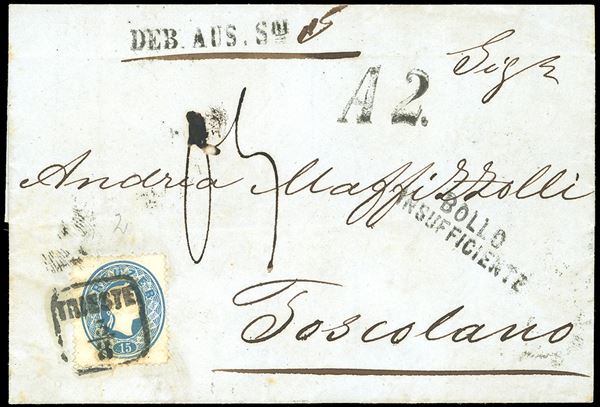 DEB. AUS. Sdi 15
A2.
Sigr
Andrea Maffizzolli
BOLLO
INSUFFICIENTE
2
TRIESTE
15
Toscolano